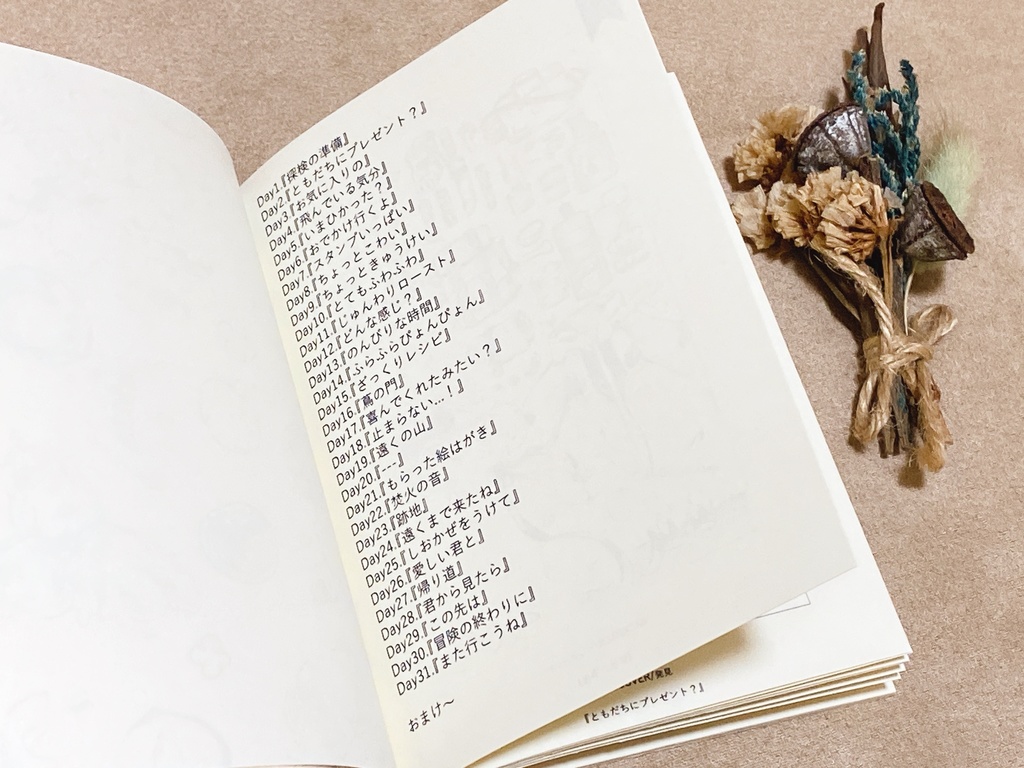 Day1.『探検の準備』
Day2.『ともだちにプレゼント？』
Day3.『お気に入りの』
Day4.『飛んでいる気分』
Day5.『いまひかった？』
Day6.『おでかけ行くよ』
Day7.『スタンプいっぱい』
Day8.『ちょっとこわい』
Day9.『ちょっときゅうけい』
Day10.『とてもふわふわ』
Day11.『じゅんわりロースト』
Day12.『どんな感じ？』
Day13.『のんびりな時間』
Day14.『ふらふらぴょんぴょん』
Day15.『ざっくりレシピ』
Day16.『蔦の門』
Day17.『喜んでくれたみたい？』
Day18.『止まらない…！』
Day19.『遠くの山』
Day20.『---』
Day21.『もらった絵はがき』
Day22.『焚火の音』
Day23.『跡地』
Day24.『遠くまで来たね』
Day25.『しおかぜをうけて』
Day26.『愛しい君と』
Day27.『帰り道』
Day28.『君から見たら』
Day29.『この先は』
Day30.『冒険の終わりに』
Day31.『また行こうね』
おまけ～
OVER/発見
『ともだちにプレゼント？』